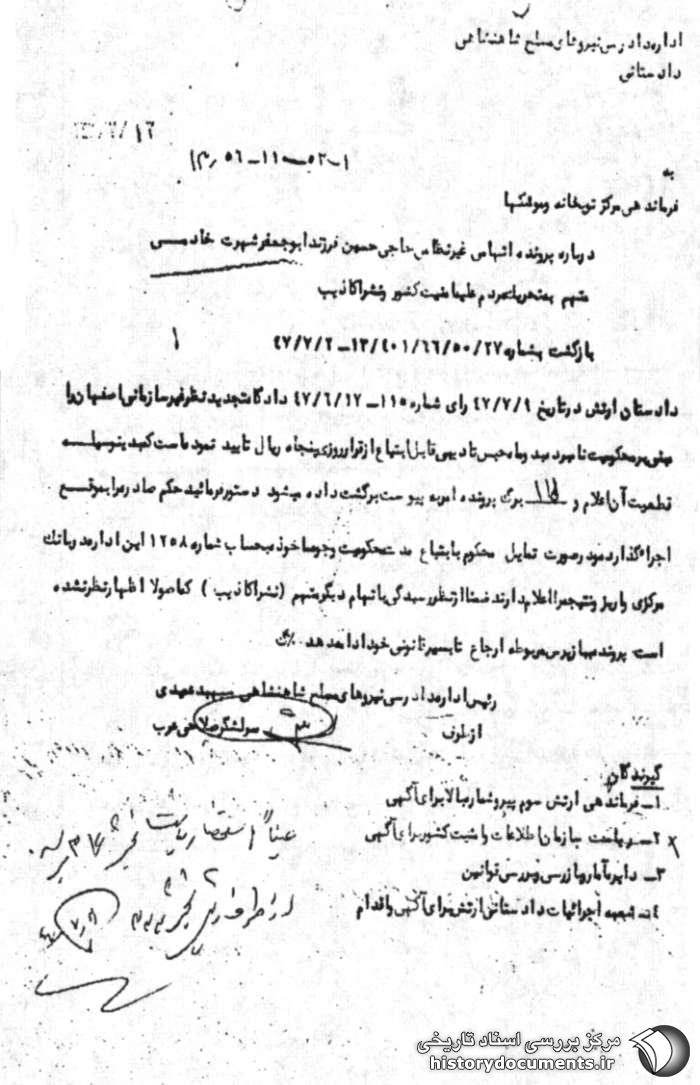 اداره دادرسی نیروهای مسلح شاهنشاهی
دادستانی
به
فرماندهی مرکز توپخانه وموشکها
درباره پرونده اتهامی غیرنظامی حاجی حسین فرزند ابوجعفر شهرت خادمی
متهم بتحریک مردم علیه امنیت کشور ونشراکاذیب
بازگشت بشماره ۲۷/۵۰/۶۶/۱۳/۴۰۱ــ۴۷/۷/۲
دادستان ارتش درتاریخ ۴۷/۷/۹ رای شماره ۱۱۵ــ۴۷/۶/۱۲ دادگاه تجدیدنظر غیرسازمانی اصفهان را
مبنی بر محکومیت نامبرده به دو ماه حبس تادیبی قابل ابتیاع از قرار روزی پنجاه ریال تایید نموده است که بدینوسیله
قطعیت آن اعلام و برگ پرونده امر به پیوست برگشت داده میشود دستورفرمائید حکم صادره را بموقع
اجرا گذارده و در صورت تمایل محکوم با ابتیاع مدت محکومیت وجه ماخوذه بحساب شماره ۱۲۵۸ این اداره در بانک
مرکزی واریز ونتیجه را اعلام دارند ضمنا ازنظر رسیدگی باتهام دیگر متهم (نشراکاذیب) که اصولا اظهارنظر نشده
است پرونده ببازپرس مربوطه ارجاع تا بسیر قانونی خود ادامه دهد
رئیس اداره دادرسی نیروهای مسلح شاهنشاهی سپهبد عمیدی
از طرف سرلشگر صلاحی عرب
گیرندگان
۱ــ فرماندهی ارتش سوم پیرو شماره بالا برای آگهی
۲ــ ریاست سازمان اطلاعات وامنیت کشور برای آگهی
۳ــ دایره آمار وبازرسی وبررسی قوانین
۴ــ شعبه اجرائیات دادستانی ارتش برای آگهی واقدام
مرکز بررسی اسناد تاریخی
historydocuments.ir